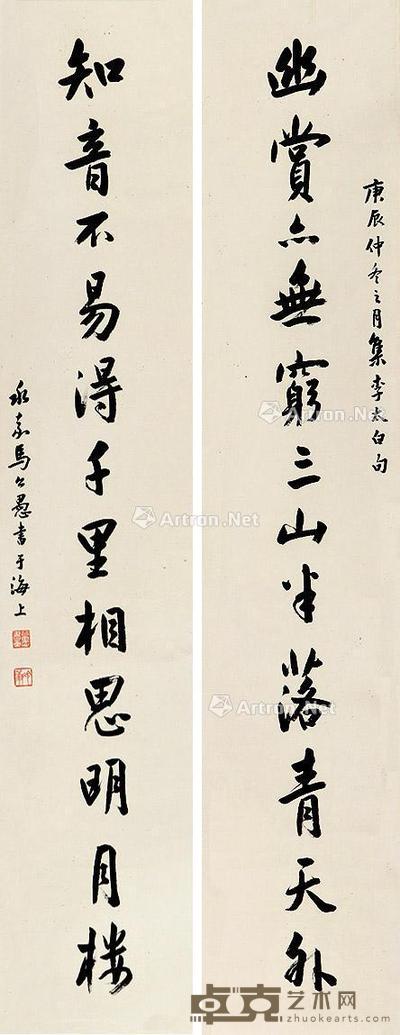 庚辰仲冬之月集李太白句
幽賞亦無窮三山半落青天外
知音不易得千里相思明月樓
永嘉馬公愚書于海上
Artron.Net
Artron.Net
Artron.Net
Artron.Net
卓克艺术网
zhuokearts.com